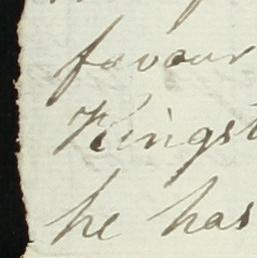 favour
Kingst
he has